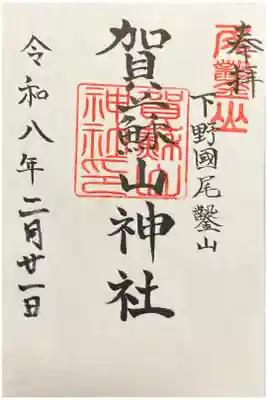 奉拝
尾鑿山
下野國尾鑿山
賀蘓山神社
賀蘓山
神社印
令和八年二月廿一日